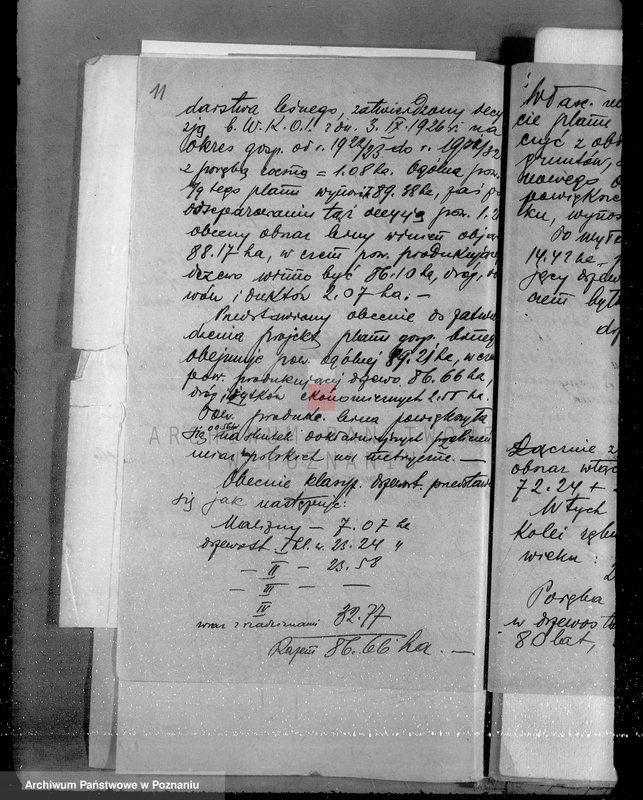 11
darstwa leśnego, zatwierdzony decy
zją b. W. K. O. L. z dn. 3. IX. 1926 r. na
okres gosp. od r. 1922/23 do r. 1931/32
z porębą roczną = 1.08 ha. Ogólna pow.
wg tego planu wynosiła 89.38 ha, zaś po
odseparowaniu tąż decyzją pow. 1.2
obecny obszar leśny winien obej
88.17 ha, w czem pow. produkująca
drzewo winno być 86.10 ha, dróg, ro
wów i duktów 2.07 ha. —
Przedstawiony obecnie do zatwier
dzenia projekt planu gosp. leśnego
obejmuje pow. ogólnej 89.21 ha, w czem
pow. produkującej drzewo 86.66 ha,
dróg i użytków ekonomicznych 2.55 ha.
Pow. produkc. leśna powiększyła
się 00.56 ha na skutek dokładniejszych przeliczeń
miar polskich na metryczne. —
Obecnie klasyf. drzewost. przedstaw
się jak następuje:
Halizny — 7.07 ha
drzewost. I kl. w. 23.24 "
— II — 23.58
— III — —
IV
wraz z rzadziznami 32.77
Razem 86.66 ha. —
Właśc.
cie planu
czyć z ob
gruntów,
nowego o
powiększe
ku, wynos
Po wyłą
14.42 ha,
jący drzew
czem był
Łącznie z
obszar włą
72.24 +
W tych
kolei ręb
wieku:
Poręba
w drzewost
80 lat,
ARCHIWUM PAŃSTWOWE
W POZNANIU
Archiwum Państwowe w Poznaniu